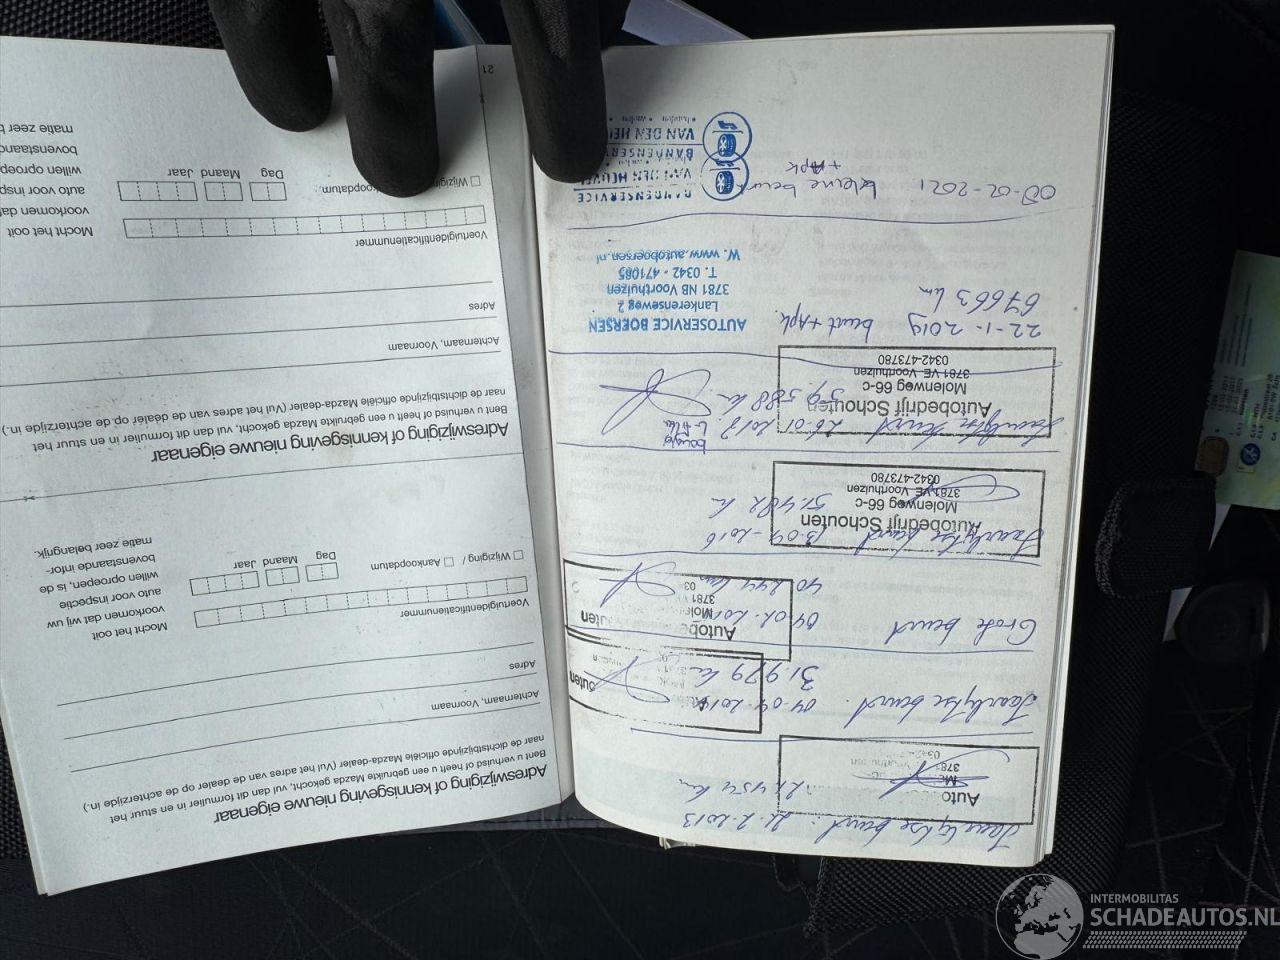 Adreswijziging of kennisgeving nieuwe eigenaar
Bent u verhuisd of heeft u een gebruikte Mazda gekocht, vul dan dit formulier in en stuur het
naar de dichtstbijzijnde officiële Mazda-dealer (Vul het adres van de dealer op de achterzijde in.)
Achternaam, Voornaam
Adres
Voertuigidentificatienummer
Wijziging / Aankoopdatum
Dag Maand Jaar
Mocht het ooit
voorkomen dat wij uw
auto voor inspectie
willen oproepen, is de
bovenstaande infor-
matie zeer belangrijk.
Adreswijziging of kennisgeving nieuwe eigenaar
Bent u verhuisd of heeft u een gebruikte Mazda gekocht, vul dan dit formulier in en stuur het
naar de dichtstbijzijnde officiële Mazda-dealer (Vul het adres van de dealer op de achterzijde in.)
Achternaam, Voornaam
Adres
Voertuigidentificatienummer
Dag Maand Jaar
Mocht het ooit
voorkomen dat
auto voor inspe
willen oproepe
bovenstaand
matie zeer b
21
Jaarlijkse beurt. 21-2-2013
21.454 km
Auto
3781
Jaarlijkse beurt. 04-04-2014
31.979 km
outen
Grote beurt 04-02-201
40 244 km
Autobe outen
Molen
3781
03
Jaarlijkse beurt 13-04-2016
51.482 km
Autobedrijf Schouten
Molenweg 66-c
3781 VE Voorthuizen
0342-473780
Jaarlijkse beurt 26-01-2017
59.588 km
Autobedrijf Schouten
Molenweg 66-c
3781 VE Voorthuizen
0342-473780
22-1-2019 beurt + Apk.
67663 km
AUTOSERVICE BOERSEN
Lankerenseweg 2
3781 NB Voorthuizen
T. 0342 - 471085
W. www.autoboersen.nl
00-02-2021 kleine beurt
+ Apk
BANDENSERVICE
VAN DEN HEUVEL
BANDENSERV
VAN DEN HEU
INTERMOBILITAS
SCHADEAUTOS.NL